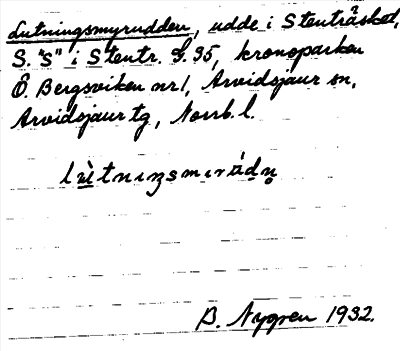 Lutningsmyrudden, udde i Stenträsket,
S. "S" i Stentr. G. 35, kronoparken
Ö. Bergsviken nr 1, Arvidsjaur sn,
Arvidsjaur tg, Norrb. l.
B. Nygren 1932.